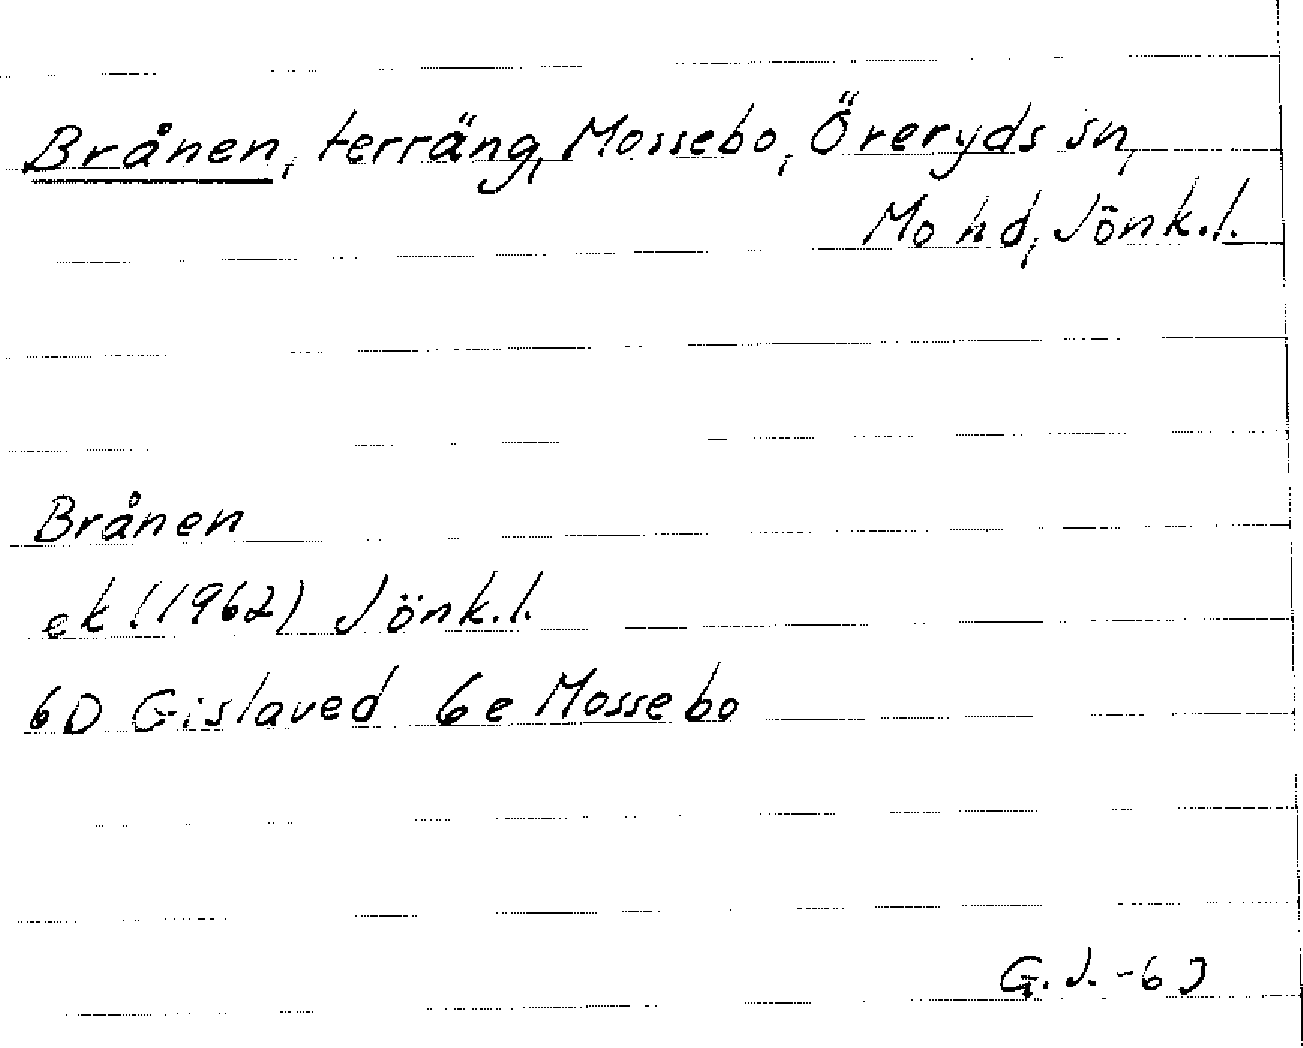 Brånen, terräng, Mossebo, Öreryds sn,
Mo hd, Jönk.l.
Brånen
ek (1962) Jönk.l.
6D Gislaved 6e Mossebo
G.J. -63